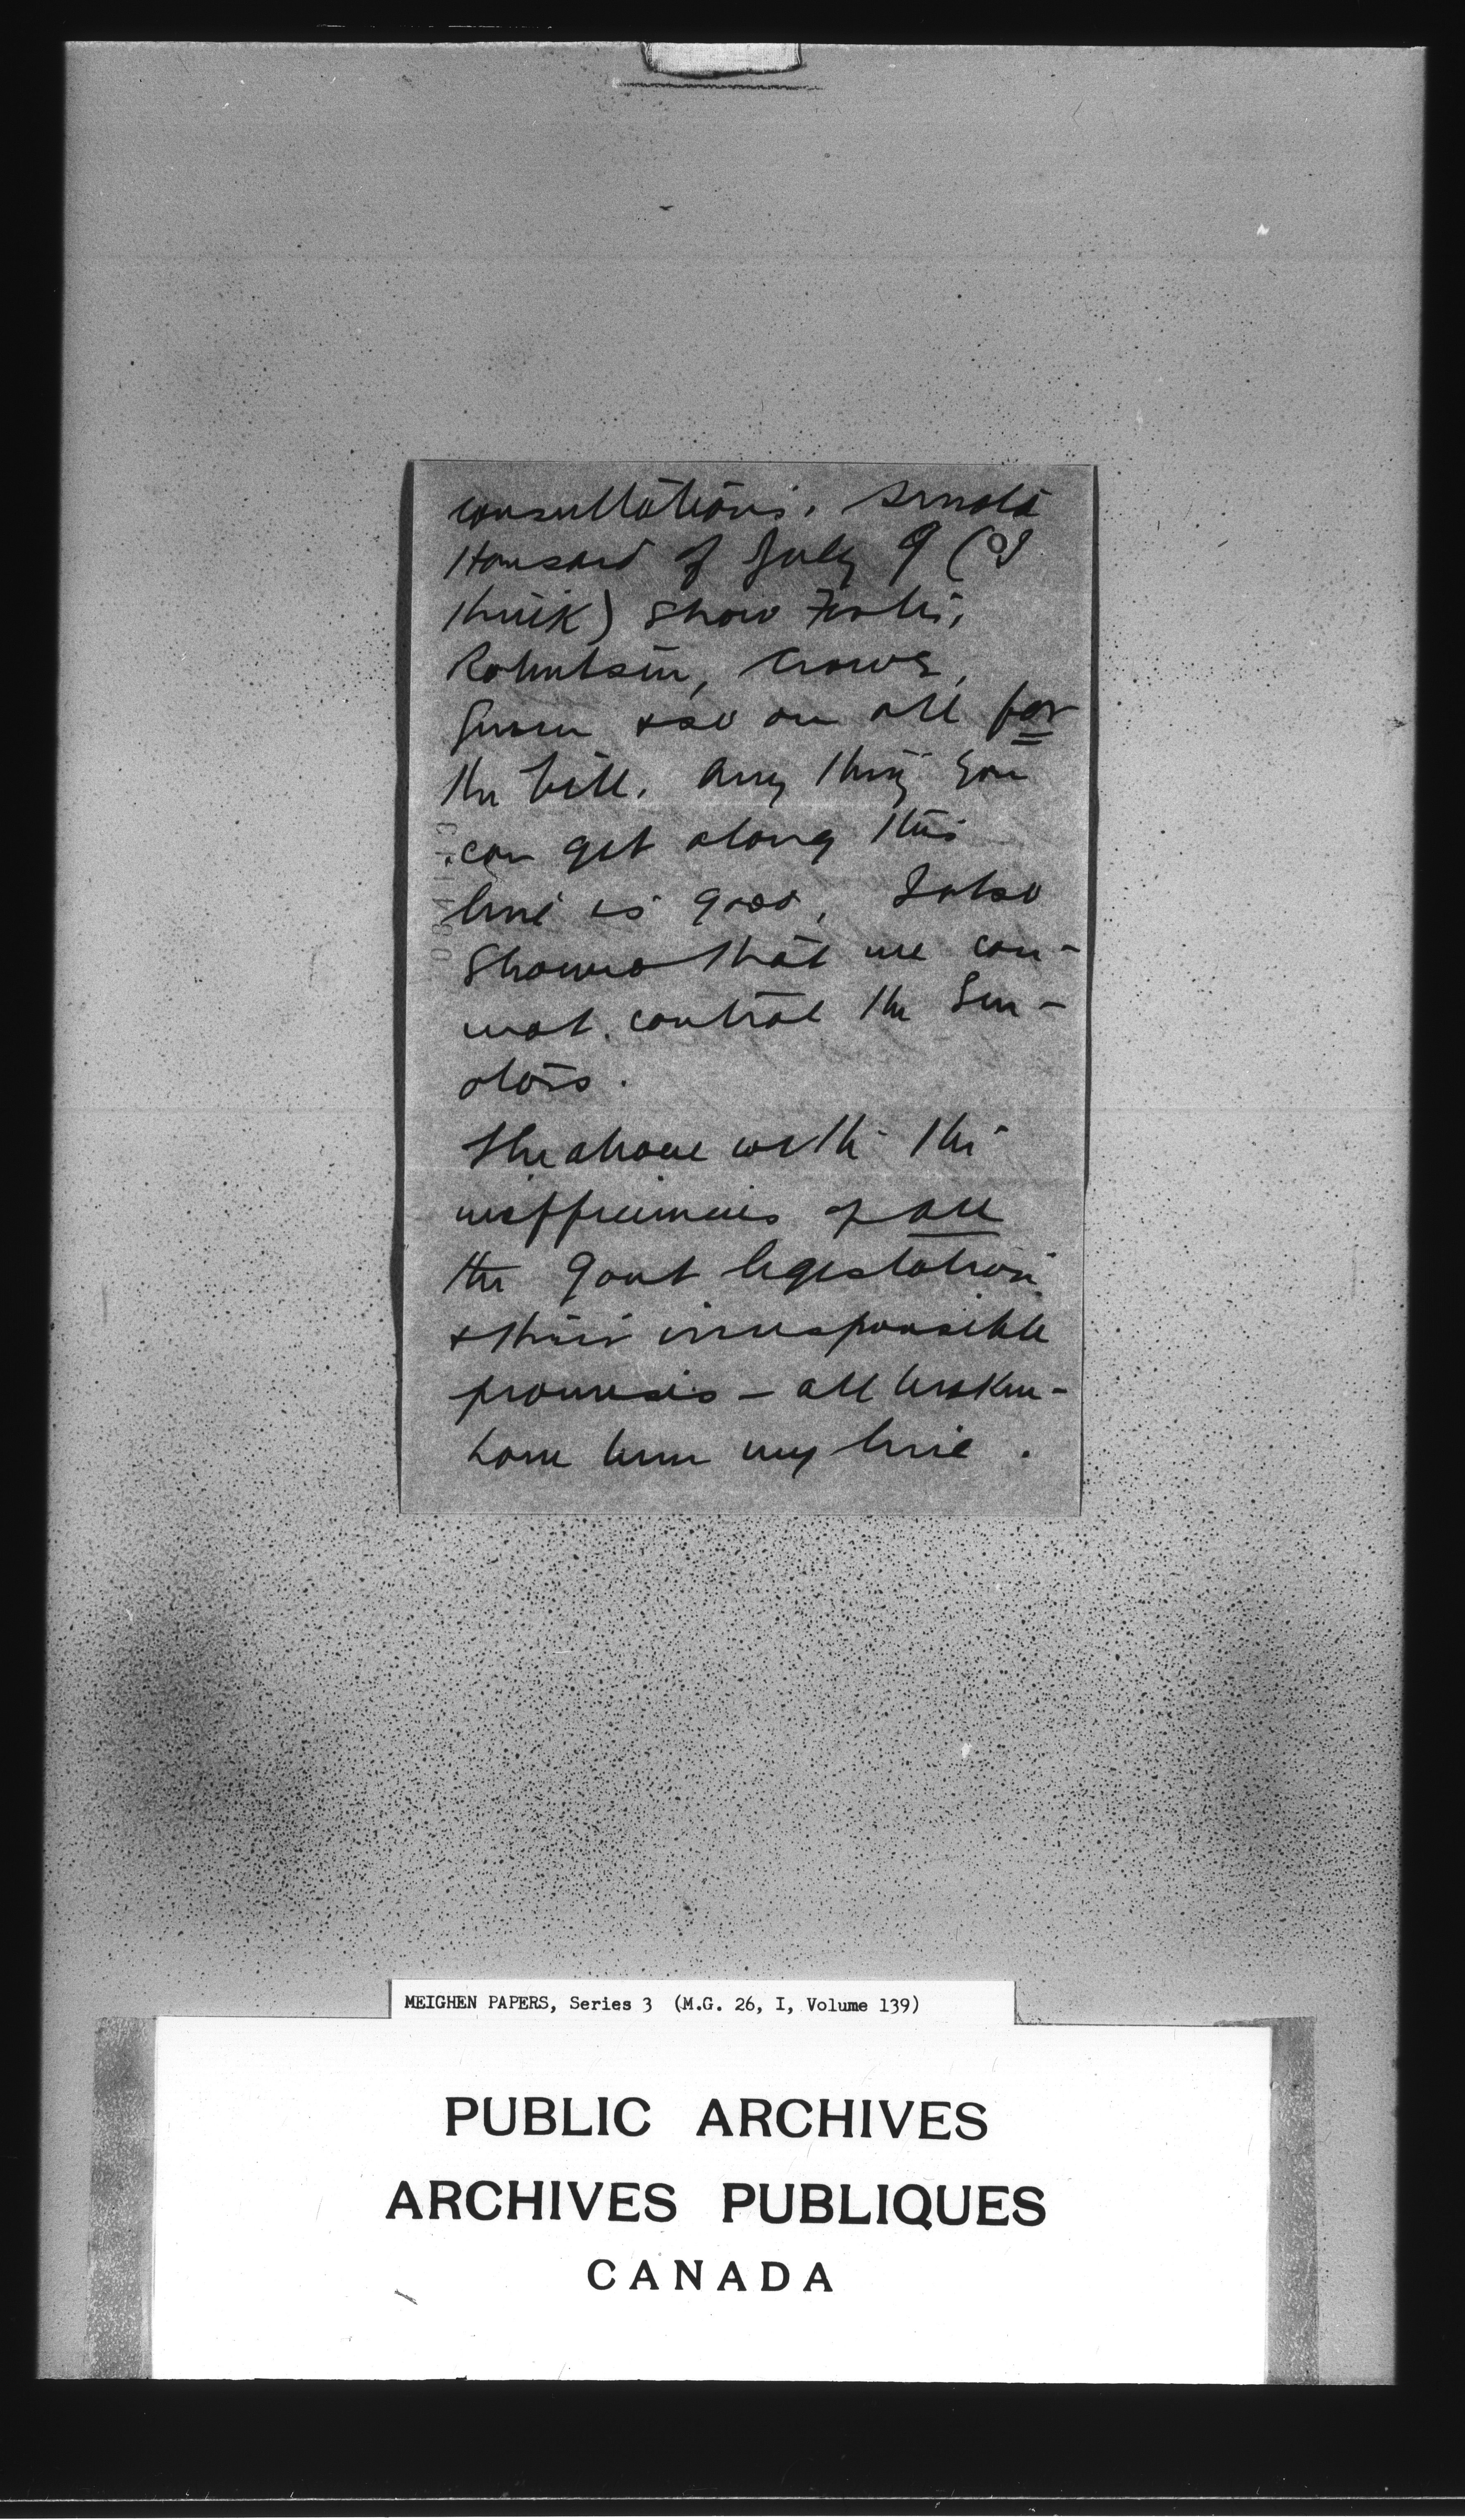 consultations. Senate
Hansard of July 9 (I
think) show Foster,
Robertson, Crowe,
Green & so on all for
the bill. Any thing you
can get along this
line is good. I also
showed that we can-
not control the Sen-
ators.
The above with the
inefficiencies of all
the Govt legislation
& their irresponsible
promises - all broken -
have been my line.
MEIGHEN PAPERS, Series 3 (M.G. 26, I, Volume 139)
PUBLIC ARCHIVES
ARCHIVES PUBLIQUES
CANADA